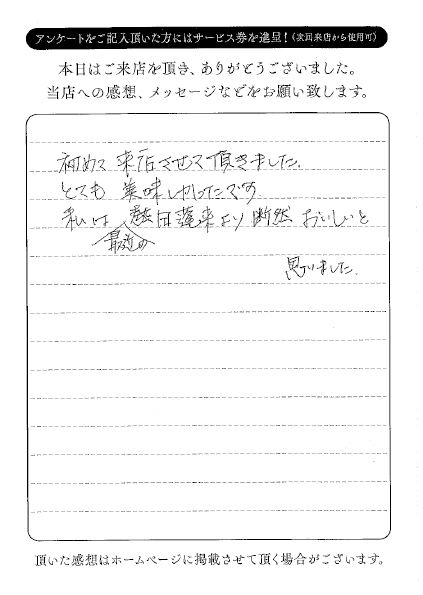 アンケートをご記入頂いた方にはサービス券を進呈!(次回来店から使用可)
本日はご来店を頂き、ありがとうございました。
当店への感想、メッセージなどをお願い致します。
初めて来店させて頂きました。
とても美味しかったです。
私は 蓬来より断然おいしいと
最近の
思いました。
頂いた感想はホームページに掲載させて頂く場合がございます。